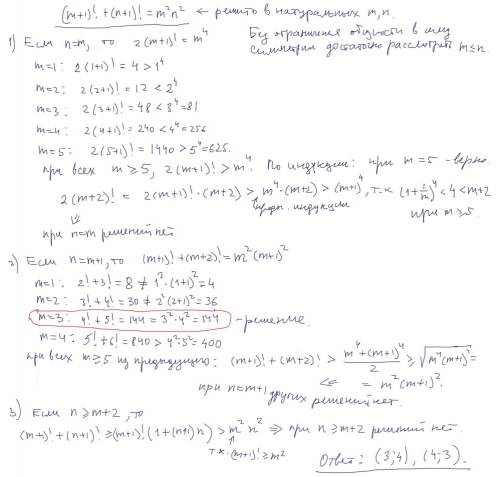 (m+1)! + (n+1)! = m²n² ← решить в натуральных m, n.
Без ограничения общности в силу
симметрии достаточно рассмотреть m ≤ n.
1) Если n=m, то 2(m+1)! = m⁴
m=1: 2(1+1)! = 4 > 1⁴
m=2: 2(2+1)! = 12 < 2⁴
m=3: 2(3+1)! = 48 < 3⁴ = 81
m=4: 2(4+1)! = 240 < 4⁴ = 256
m=5: 2(5+1)! = 1440 > 5⁴ = 625.
при всех m ≥ 5, 2(m+1)! > m⁴. По индукции: при m=5 - верно.
2(m+2)! = 2(m+1)!·(m+2) > m⁴·(m+2) > (m+1)⁴, т.к. (1+1/m)⁴ < 4 < m+2
предп. индукции
при m ≥ 5.
⇓
при n=m решений нет
2) Если n=m+1, то (m+1)! + (m+2)! = m²(m+1)²
m=1: 2!+3! = 8 ≠ 1²·(1+1)² = 4
m=2: 3!+4! = 30 ≠ 2²(2+1)² = 36
m=3: 4!+5! = 144 = 3²·4² = 144 - решение.
m=4: 5!+6! = 840 > 4²·5² = 400
при всех m ≥ 5 из предыдущего: (m+1)! + (m+2)! > (m⁴+(m+1)⁴)/2 ≥ √(m⁴(m+1)⁴) =
⇐ = m²(m+1)².
при n=m+1 других решений нет.
3) Если n ≥ m+2, то
(m+1)! + (n+1)! ≥ (m+1)! (1+(n+1)n) > m²n² ⇒ при n ≥ m+2 решений нет.
т.к. (m+1)! ≥ m²
Ответ: (3;4), (4;3).